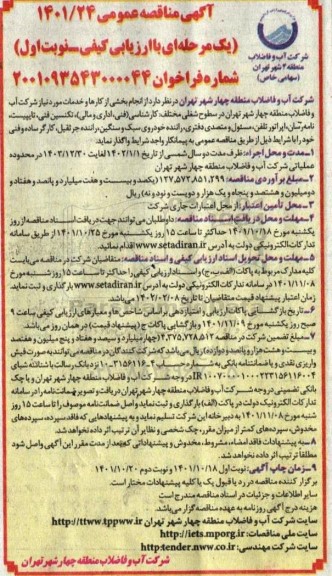 آگهی مناقصه عمومی ۱۴۰۱/۲۴
(یک مرحله‌ای با ارزیابی کیفی - نوبت اول)
شماره فراخوان ۲۰۰۱۰۹۳۵۴۳۰۰۰۰۴۴
شرکت آب و فاضلاب
منطقه ۴ شهر تهران
(سهامی خاص)
شرکت آب و فاضلاب منطقه چهار شهر تهران در نظر دارد از انجام بخشی از کارها و خدمات مورد نیاز شرکت آب
و فاضلاب منطقه چهار شهر تهران در سطوح شغلی مختلف کارشناس (فنی، اداری و مالی)، تکنسین فنی، تایپیست،
نامه‌رسان، اپراتور تلفن، مسئول و متصدی دفتری، راننده خودروی سبک و سنگین، راننده جرثقیل، کارگر ساده و فنی
خود را با شرایط ذیل از طریق مناقصه عمومی به پیمانکار واجد شرایط واگذار نماید:
۱- مدت و محل اجرا: ظرف مدت دو سال شمسی از تاریخ ۱۴۰۲/۱/۱ لغایت ۱۴۰۳/۱۲/۳۰ در محدوده
عملیاتی شرکت آب و فاضلاب منطقه چهار شهر تهران
۲- مبلغ برآوردی مناقصه: ۱۲۷,۵۷۲,۸۵۱,۲۹۹ (یکصد و بیست و هفت میلیارد و پانصد و هفتاد و
دو میلیون و هشتصد و پنجاه و یک هزار و دویست و نود و نه) ریال
۳- محل تأمین اعتبار: از محل اعتبارات جاری شرکت
۴- مهلت و محل دریافت اسناد مناقصه: داوطلبان می‌توانند جهت دریافت اسناد مناقصه از روز
یکشنبه مورخ ۱۴۰۱/۱۰/۱۸ حداکثر تا ساعت ۱۵ روز یکشنبه مورخ ۱۴۰۱/۱۰/۲۵ از طریق سامانه
تدارکات الکترونیکی دولت به آدرس www.setadiran.ir اقدام نمایند.
۵- مهلت و محل تحویل اسناد ارزیابی کیفی و اسناد مناقصه: متقاضیان شرکت در مناقصه می‌بایست
کلیه مدارک مربوط به پاکات (الف، ب، ج) و اسناد ارزیابی کیفی را حداکثر تا ساعت ۱۵ روز شنبه مورخ
۱۴۰۱/۱۱/۰۸ در سامانه تدارکات الکترونیکی دولت به آدرس www.setadiran.ir بارگذاری و ثبت نمایند
زمان اعتبار پیشنهاد قیمت متقاضیان تا تاریخ ۱۴۰۲/۰۲/۰۸ می‌باشد.
۶- تاریخ بازگشایی پاکات ارزیابی و امتیازدهی براساس شاخص‌ها و معیارهای ارزیابی کیفی ساعت ۹
صبح روز یکشنبه مورخ ۱۴۰۱/۱۱/۰۹ و بازگشایی پاکات ج (پیشنهاد قیمت) در همان روز می‌باشد.
۷- مبلغ تضمین شرکت در مناقصه ۴,۳۷۵,۷۲۸,۵۱۲ (چهار میلیارد و سیصد و هفتاد و پنج میلیون و هفتصد
و بیست و هشت هزار و پانصد و دوازده) ریال می‌باشد که شرکت کنندگان در مناقصه می‌توانند به صورت فیش
بانکی تضمینی در وجه شرکت آب و فاضلاب منطقه چهار شهر تهران دریافت و تصویر ضمانت‌نامه را در سامانه
تدارکات الکترونیک دولت در پاکت (الف) بارگذاری و ثبت نماید و اصل ضمانت‌نامه موصوف را تا ساعت ۱۵ روز
شنبه مورخ ۱۴۰۱/۱۱/۰۸ به دبیرخانه این شرکت تسلیم نماید و به پیشنهادهایی که فاقد سپرده، سپرده‌های
مخدوش، سپرده‌های کمتر از میزان مقرر، چک شخصی و نظایر آن ترتیب اثر داده نخواهد شد.
۸- به پیشنهادات فاقد امضاء، مشروط، مخدوش و پیشنهاداتی که بعد از مدت مقرر این آگهی واصل شود
مطلقاً ترتیب اثر داده نخواهد شد.
۹- زمان چاپ آگهی: نوبت اول ۱۴۰۱/۱۰/۱۸ و نوبت دوم ۱۴۰۱/۱۰/۲۰
برگزار کننده مناقصه در رد یا قبول یک یا کلیه پیشنهادات مختار است.
سایر اطلاعات و جزئیات در اسناد مناقصه مندرج است
هزینه درج آگهی روزنامه به عهده مناقصه‌گزار می‌باشد.
سایت شرکت آب و فاضلاب منطقه چهار شهر تهران http://ttww.tppww.ir
سایت ملی مناقصات: http://iets.mporg.ir
سایت شرکت مهندسی: http:tender.nww.co.ir
شرکت آب و فاضلاب منطقه چهار شهر تهران